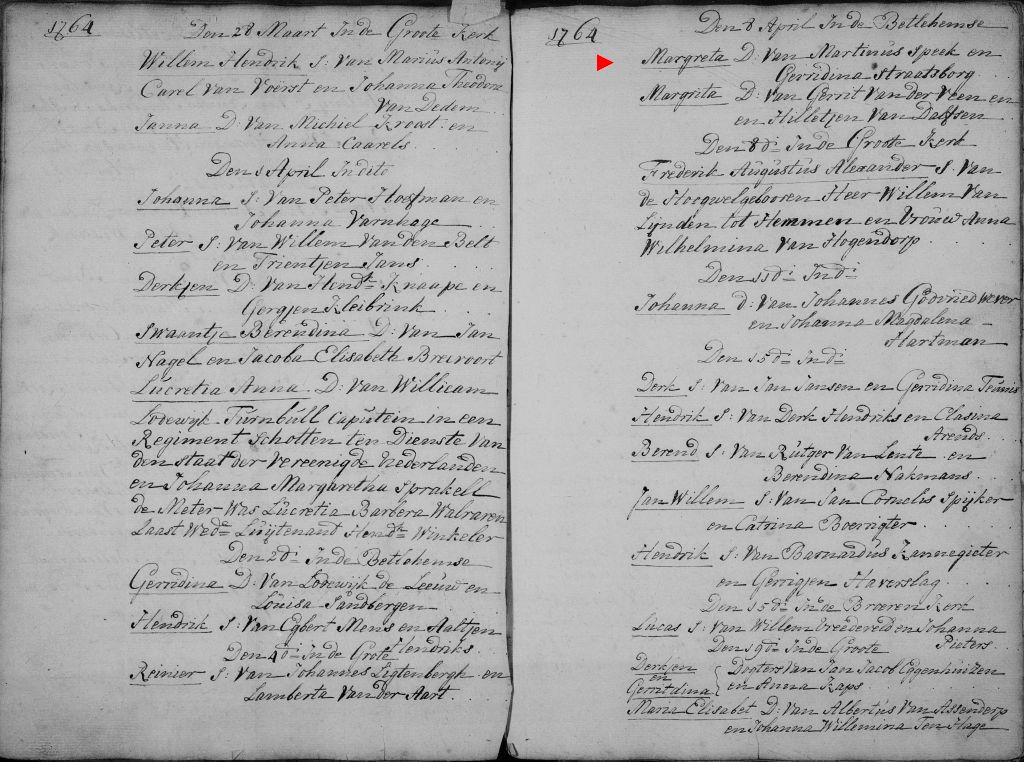 1764
Den 28 Maart In de Groote Kerk
Willem Hendrik S: Van Marius Antonij
Carel Van Voerst en Johanna Theodora
Van Dedem
Janna D: Van Michiel Kroost en
Anna Caarels
Den 1 April In dito
Johanna S: Van Peter Hoofman en
Johanna Varnhage
Peter S: Van Willem Van den Belt
en Trientjen Jans
Derkjen D: Van Hendk Knaape en
Gergjen Kleibrink
Swaantje Berendina D: Van Jan
Nagel en Jacoba Elisabeth Brevoort
Lucretia Anna D: Van William
Lodewijk Turnbull Capitein in een
Regiment Schotten ten Dienste Van
den Staat der Vereenigde Nederlanden
en Johanna Margaretha Sprakell
de Meter Was Lucretia Barbera Walraven
Laast Wede Luijtenand Hendk Winkeler
Den 2d: In de Bethlehemse
Gerridina D: Van Lodewijk de Leeuw en
Louisa Sandbergen
Hendrik S: Van Egbert Mens en Aaltjen
Hendriks
Den 4d: in de Grote
Reinier S: Van Johannes Ligtenbergh en
Lamberta Van der Aart
1764
Den 8 April In de Betlehemse
Margreta D: Van Martinus Speek en
Gerridina Straatsborg
Margrita D: Van Gerrit Van der Veen en
en Hilletjen Van Dalfsen
Den 8d: In de Groote Kerk
Frederik Augustus Alexander S: Van
de Hoogwelgebooren Heer Willem Van
Lijnden tot Hemmen en Vrouw Anna
Wilhelmina Van Hogendorp
Den 11d: In d:
Johanna d: Van Johannes Godvried Wever
en Johanna Magdalina
Hartman
Den 15d: In d:
Derk S: Van Jan Jansen en Gerridina Teunis
Hendrik S: Van Derk Hendriks en Clasina
Arends
Berend S: Van Rutger Van Lente en
Berendina Nakmans
Jan Willem S: Van Jan Cornelis Spijker
en Catrina Boerrigter
Hendrik S: Van Barnardus Kannegieter
en Gerrigjen Haverslag
Den 15d: In de Broeren Kerk
Lucas S: Van Willem Vreedereld en Johanna
Pieters
Den 19d: In de Groote
Derkjen
en
Gerritdina
Dogters Van Jan Jacob Eggenhuizen
en Anna Kaps
Maria Elisabet D: Van Albertus Van Assendorp
en Johanna Willemina Ten Hage